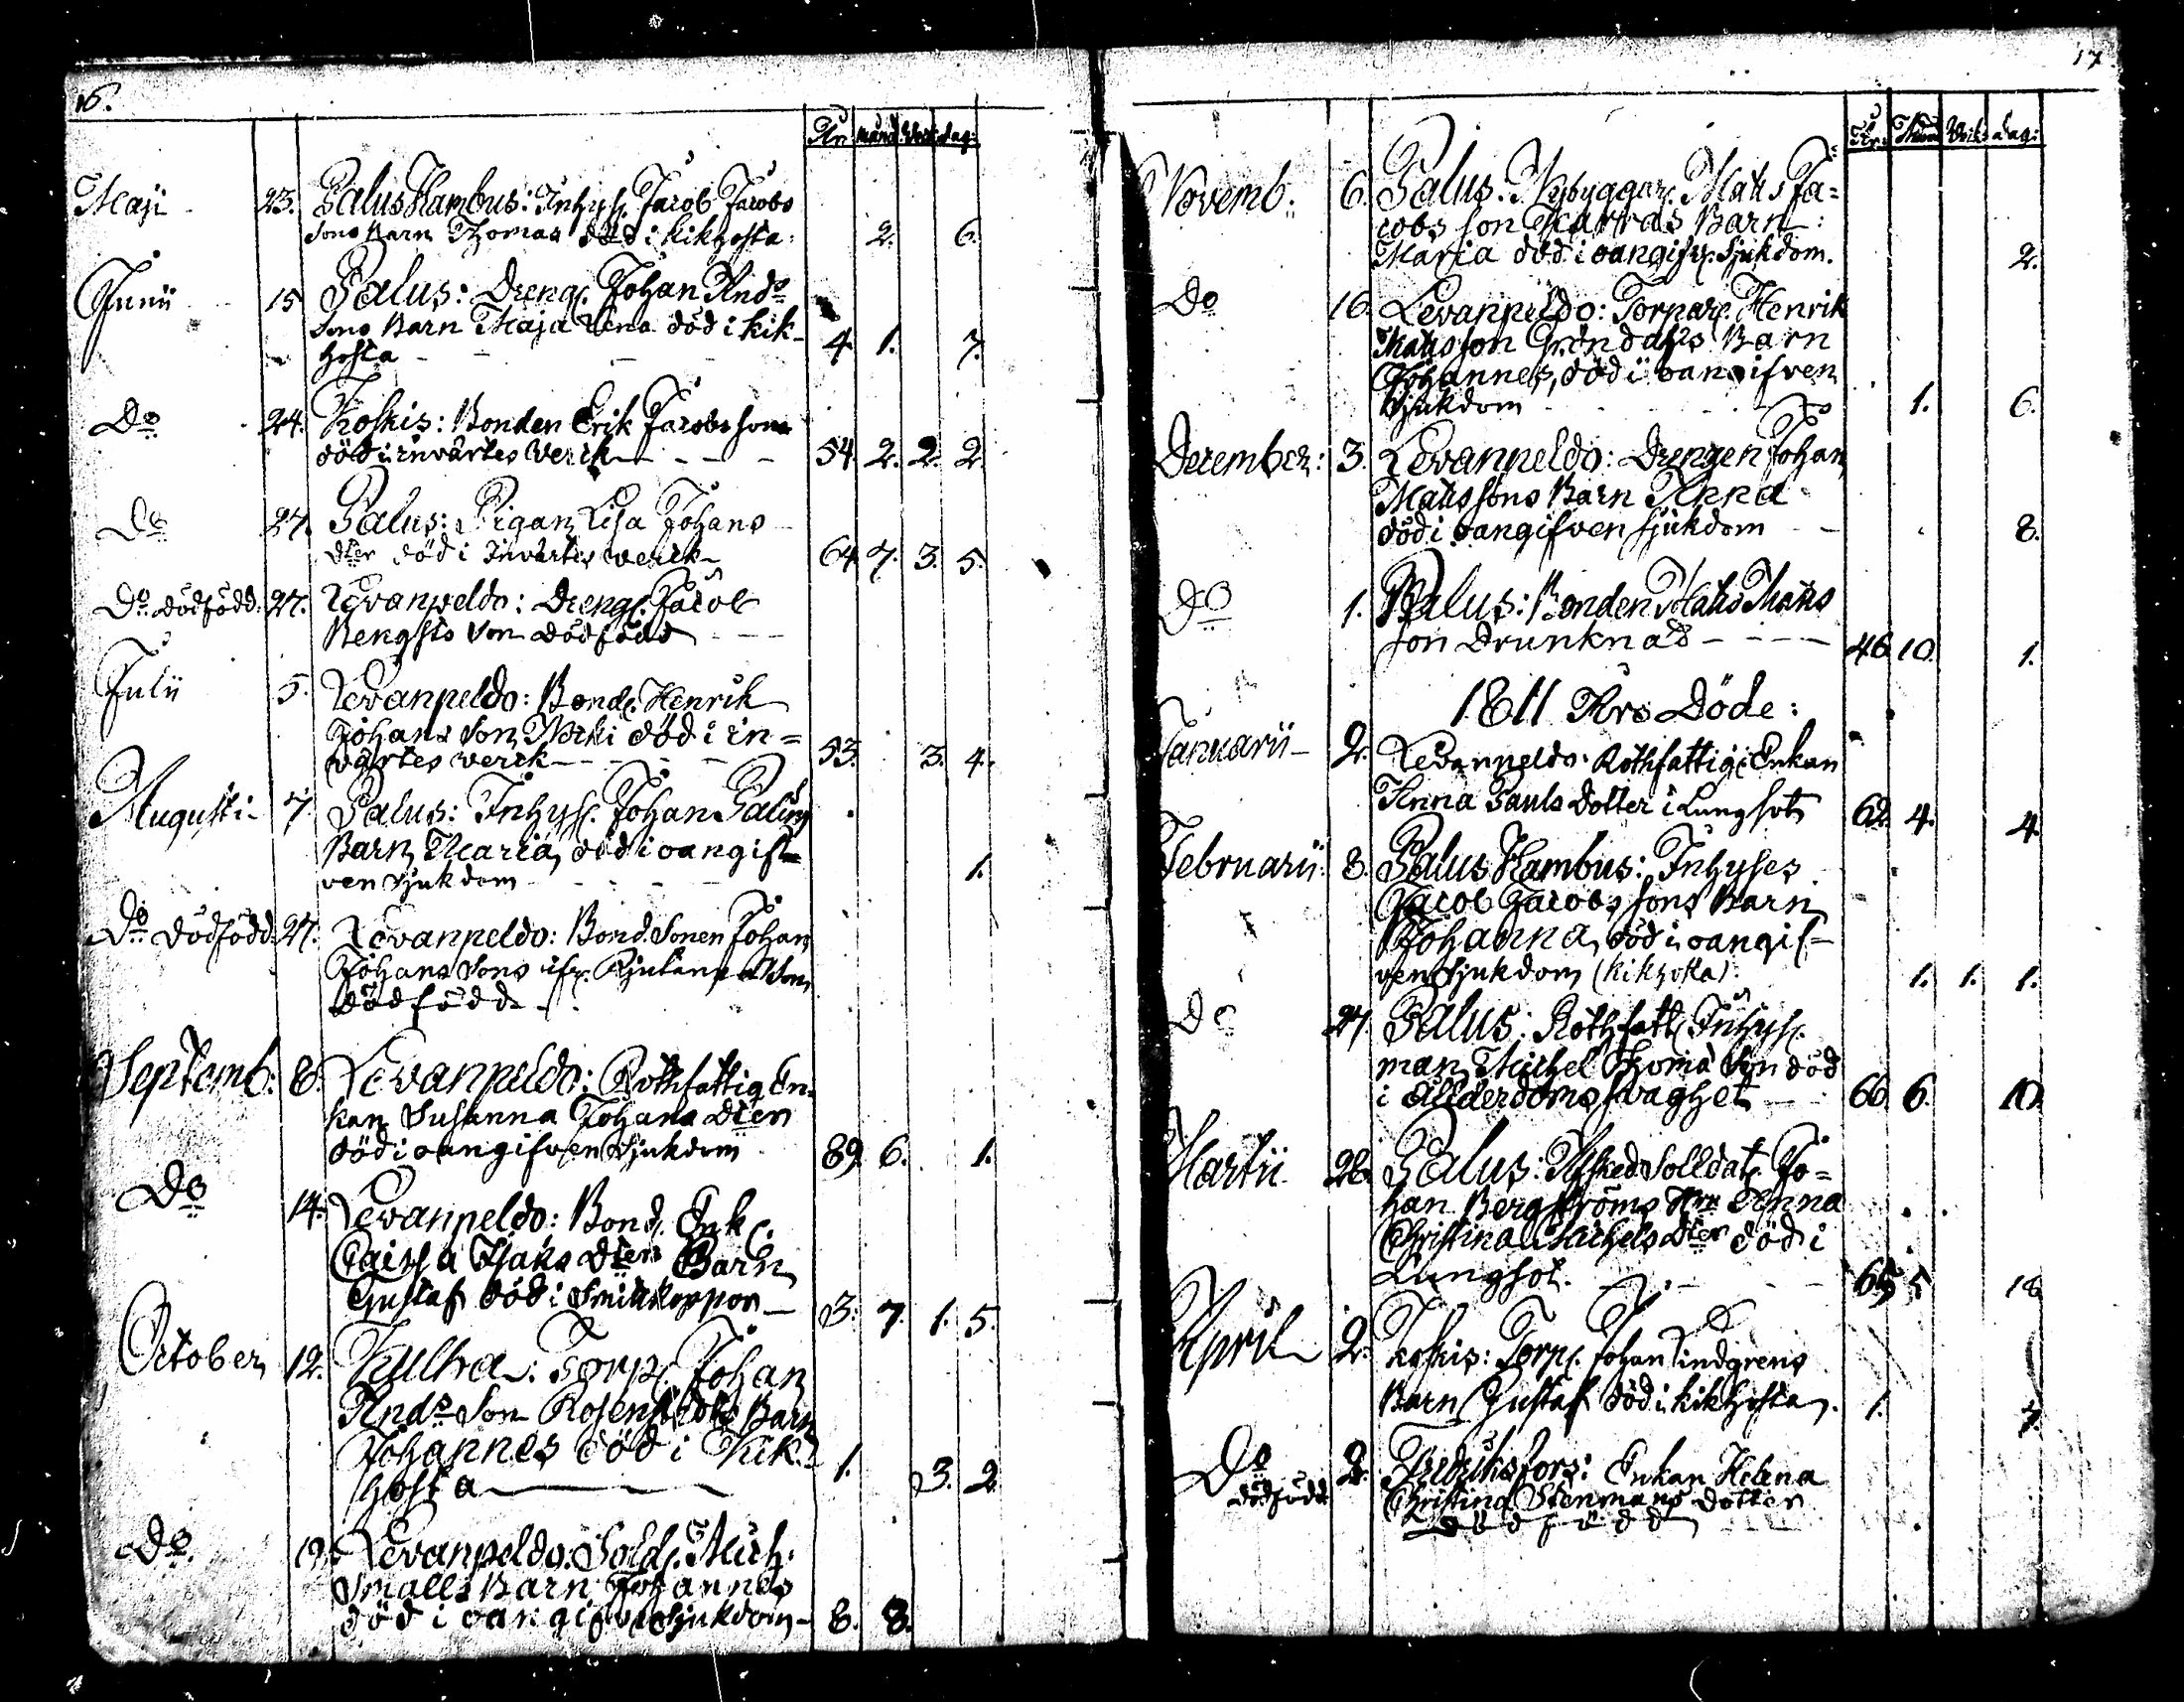 16.
År. månd. Veck. dag:
Maji 23. Palus Hambus: Inhys. Jacob Jacobs
sons Barn Thomas död i kikhosta. 2. 6.
Junii 15 Palus: Dreng. Johan And:
sons Barn Maja Lena död i kik-
hosta 4. 1. 7.
Do 24. Koskis: Bonden Erik Jacobsson
död i invärtes Verck 54. 2. 2. 2.
Do 27. Palus: Pigan Lisa Johans
dter död i Invärtes verck 64. 7. 3. 5.
Do dödfödd. 27. Levanpeldo: Dreng. Jacob
Bengts Son dödfödd
Julii 5. Levanpeldo: Bond. Henrik
Johans Son död i in=
värtes werck 53. 3. 4.
Augusti 7. Palus: Inhys. Johan Palin
Barn Maria, död i oangif=
ven sjukdom 1.
Do dödfödd 27. Levanpeldo: Bond. Sonen Johan
Johans Sons Son
dödfödd
Septemb: 8. Levanpeldo: Rothfattig En-
kan Susanna Johans Dter
död i oangifven Sjukdom 89. 6. 1.
Do 14. Levanpeldo: Bond. Enk.
Caisa Isaks Dters Barn
Gustaf död i Smittkoppor 3. 7. 1. 5.
October 12. Kullaa: Torp. Johan
And: Son Barn
Johannes död i Kik-
hosta 1. 3. 2
Do. 19. Levanpeldo: Sold. Mich.
Smalls Barn Johannes
död i oangifven Sjukdom 8. 8.
17
År. Mån. Veck. dag:
Novemb: 6. Palus: Nybyggar. Mats Ja=
cobs son Harras Barn
Maria död i oangifv. Sjukdom. 2.
Do 16. Levanpeldo: Torpar. Henrik
Matsson Gröndahls Barn
Johannes, död i oangifven
Sjukdom 1. 6.
December: 3. Levanpeldo: Drengen Johan
Matssons Barn Anna
död i oangifven sjukdom 8.
Do 1. Palus: Bonden Mats Mats
son Drunknad 46. 10. 1.
1811 Års Döde:
Januarii 2. Levanpeldo: Rothfattig Enkan
Anna Pauls dotter i Lungsot 62. 4. 4.
Februarii 8. Palus Hambus: Inhyses
Jacob Jacobs sons Barn
Johanna, död i oangif-
ven Sjukdom (kikhosta) 1. 1. 1.
Do 27 Palus: Rothfatt. Inhys.
man Michel Thoma Son död
i ålderdoms svaghet 66 6. 10.
Martii 28. Palus: Afsked. Solldat. Jo=
han Bergströms Anna
Christina Michels Dter död i
Lungsot. 65 5 18
April 2. Koskis: Torp. Johan Lindgrens
Barn Gustaf död i kikhosta. 1. 7.
Do dödfödd 2. Fredriksfors: Enkan Helena
Christina Stenmans dotter
dödfödd